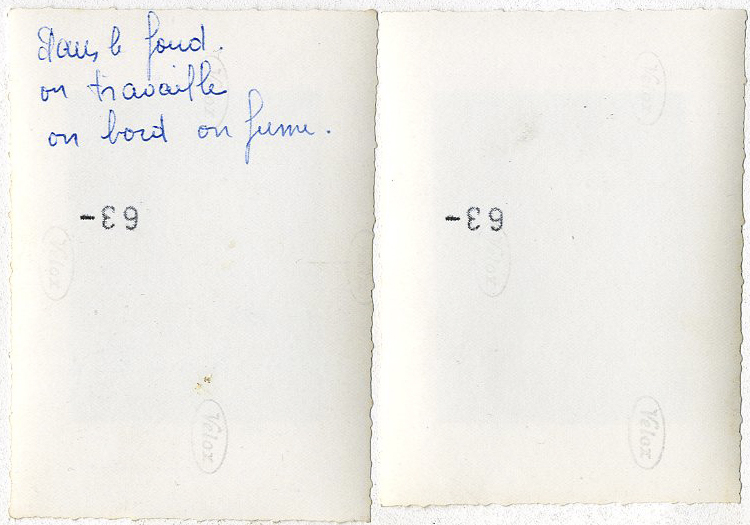 Dans le fond.
on travaille
on bord on fume.
63-
63-
Velox
Velox
Velox
Velox
Velox